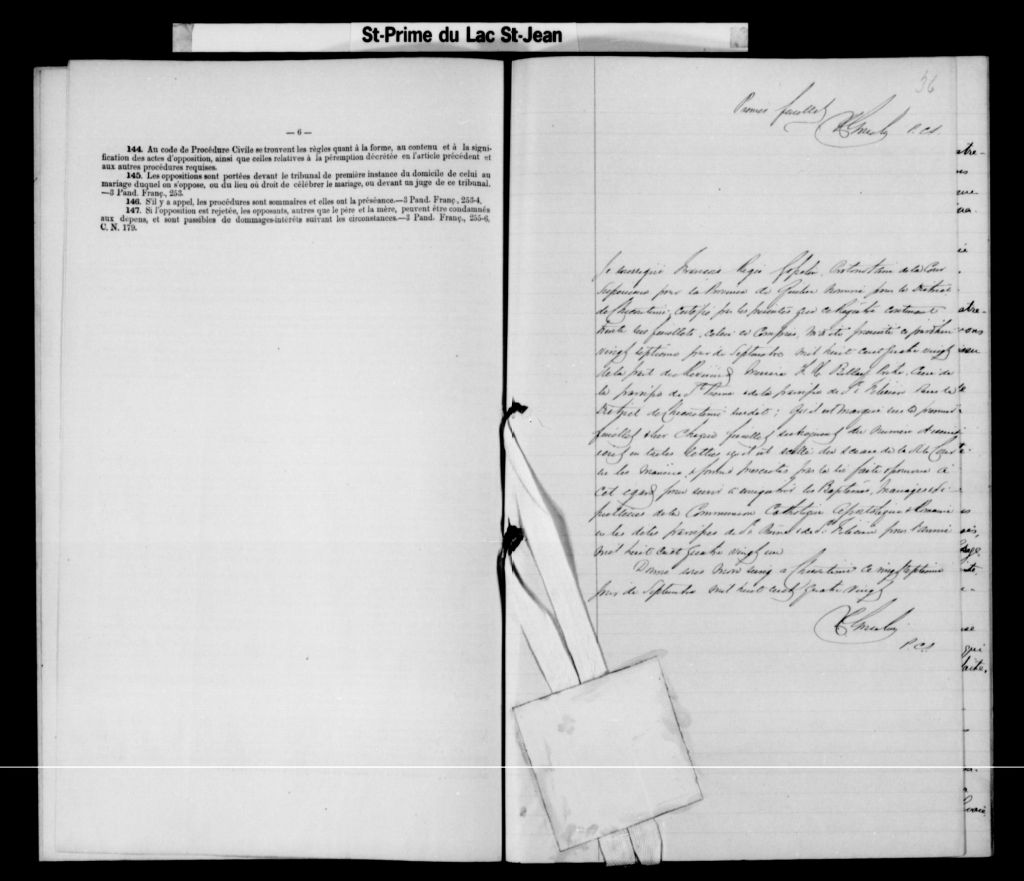 St-Prime du Lac St-Jean
— 6 —
144. Au code de Procédure Civile se trouvent les règles quant à la forme, au contenu et à la signi-
fication des actes d'opposition, ainsi que celles relatives à la péremption décrétée en l'article précédent et
aux autres procédures requises.
145. Les oppositions sont portées devant le tribunal de première instance du domicile de celui au
mariage duquel on s'oppose, ou du lieu où doit de célébrer le mariage, ou devant un juge de ce tribunal.
—3 Pand. Franç., 253.
146. S'il y a appel, les procédures sont sommaires et elles ont la préséance.—3 Pand. Franç., 253-4.
147. Si l'opposition est rejetée, les opposants, autres que le père et la mère, peuvent être condamnés
aux dépens, et sont passibles de dommages-intérêts suivant les circonstances.—3 Pand. Franç., 255-6.
C. N. 179.
36
Premier feuillet
P.C.S.
Je soussigné François Protonotaire de la Cour
Superieure pour la Province de Quebec nommé pour le District
de Chicoutimi, certifie par les présentes que ce Registre contenant
trente feuillets, celui ci compris, m'a été presenté ce
vingt septieme jour de Septembre mil huit cent quatre vingt
de la part du Reverend Messire Ptre, Curé de
la paroisse de St Prime & de la paroisse de St Felicien dans le
District de Chicoutimi susdit; qu'il est marqué sur le premier
feuillet & sur chaque feuillet du numero
en toutes lettres qu'il est scellé du sceau de la dite Cour
en la maniere & forme prescrites par la loi faite & pourvue à
cet egard pour servir à enregistrer les Baptêmes, Mariages &
sepultures de la Communion Catholique Apostolique & Romaine
en les dites paroisses de St Prime & de St Felicien pour l'année
mil huit cent quatre vingt un
Donné sous mon seing à Chicoutimi ce vingt septieme
jour de Septembre mil huit cent quatre vingt
P.C.S.